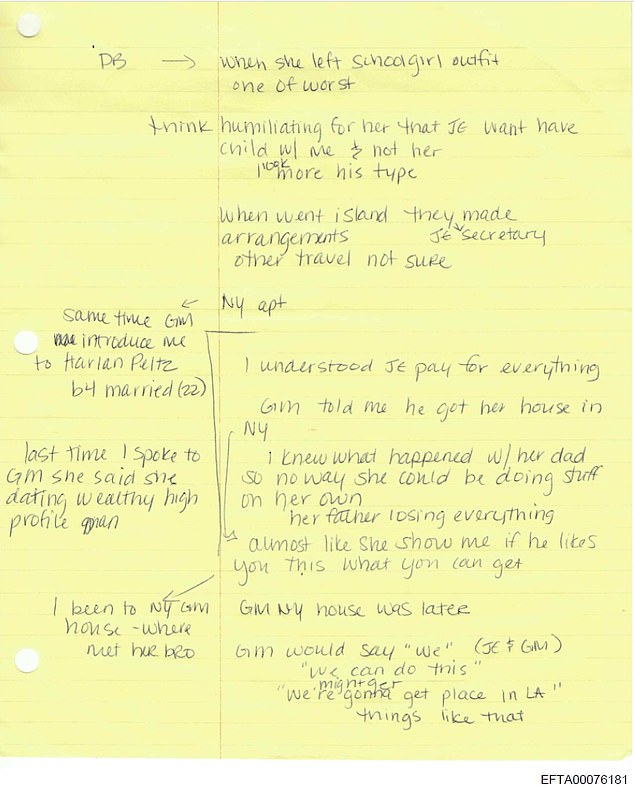 DB → when she left schoolgirl outfit
one of worst
think humiliating for her that JE want have
child w/ me & not her
look
more his type
when went island they made
arrangements JE secretary
other travel not sure
NY apt
same time GM
introduce me
to Harlan Peltz
b4 married (22)
I understood JE pay for everything
GM told me he got her house in
NY
last time I spoke to
GM she said she
dating wealthy high
profile man
I knew what happened w/ her dad
so no way she could be doing stuff
on her own
her father losing everything
almost like she show me if he likes
you this what you can get
I been to NY GM
house - where
met her bro
GM NY house was later
GM would say "we" (JE & GM)
"we can do this"
might get
"we're gonna get place in LA"
things like that
EFTA00076181